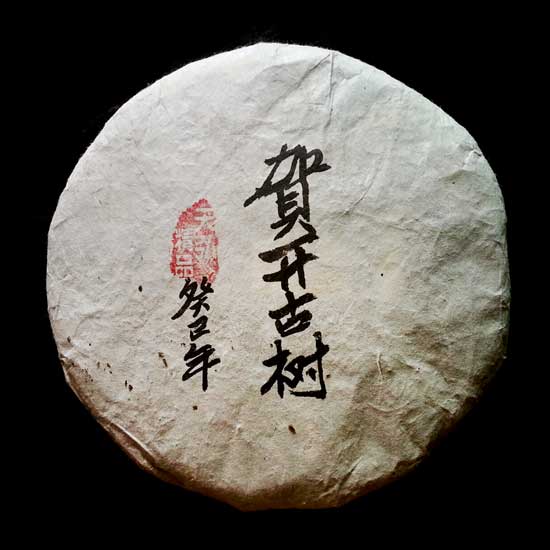 賀开古树
癸巳年